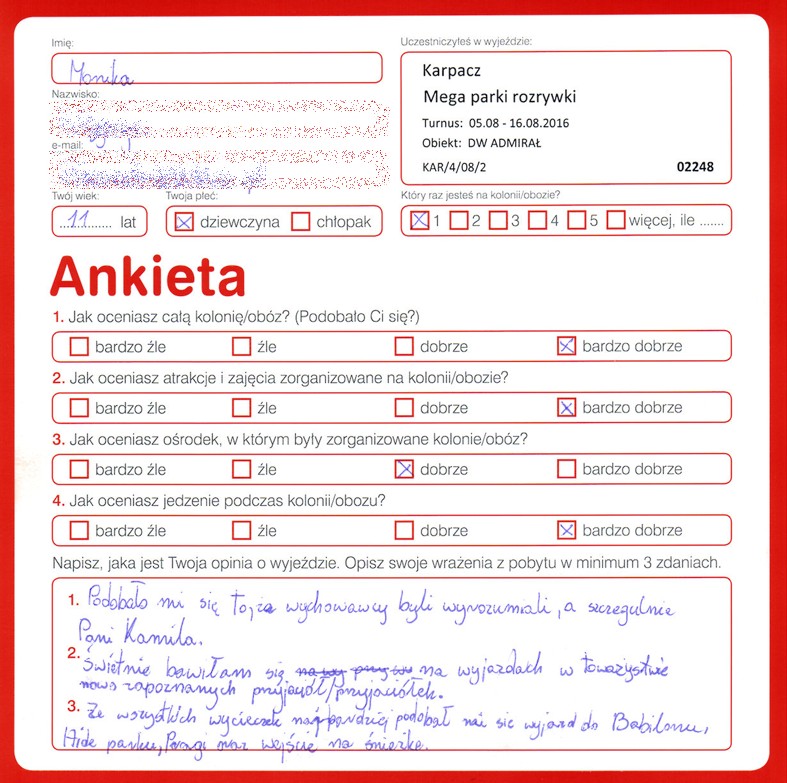 Imię:
Monika
Nazwisko:
e-mail:
Twój wiek:
....11....... lat
Twoja płeć:
dziewczyna chłopak
Uczestniczyłeś w wyjeździe:
Karpacz
Mega parki rozrywki
Turnus: 05.08 - 16.08.2016
Obiekt: DW ADMIRAŁ
KAR/4/08/2 02248
Który raz jesteś na kolonii/obozie?
1 2 3 4 5 więcej, ile .......
Ankieta
1. Jak oceniasz całą kolonię/obóz? (Podobało Ci się?)
bardzo źle źle dobrze bardzo dobrze
2. Jak oceniasz atrakcje i zajęcia zorganizowane na kolonii/obozie?
bardzo źle źle dobrze bardzo dobrze
3. Jak oceniasz ośrodek, w którym były zorganizowane kolonie/obóz?
bardzo źle źle dobrze bardzo dobrze
4. Jak oceniasz jedzenie podczas kolonii/obozu?
bardzo źle źle dobrze bardzo dobrze
Napisz, jaka jest Twoja opinia o wyjeździe. Opisz swoje wrażenia z pobytu w minimum 3 zdaniach.
1. Podobało mi się to, że wychowawcy byli wyrozumiali, a szczegulnie
Pani Kamila.
2. Świetnie bawiłam się na wyjazdach w towarzystwie
nowo zapoznanych przyjaciół/przyjaciółek.
3. Ze wszystkich wycieczek najbardziej podobał mi się wyjazd do Babilonu,
Hide parku, Pragi oraz wejście na śnieżkę.